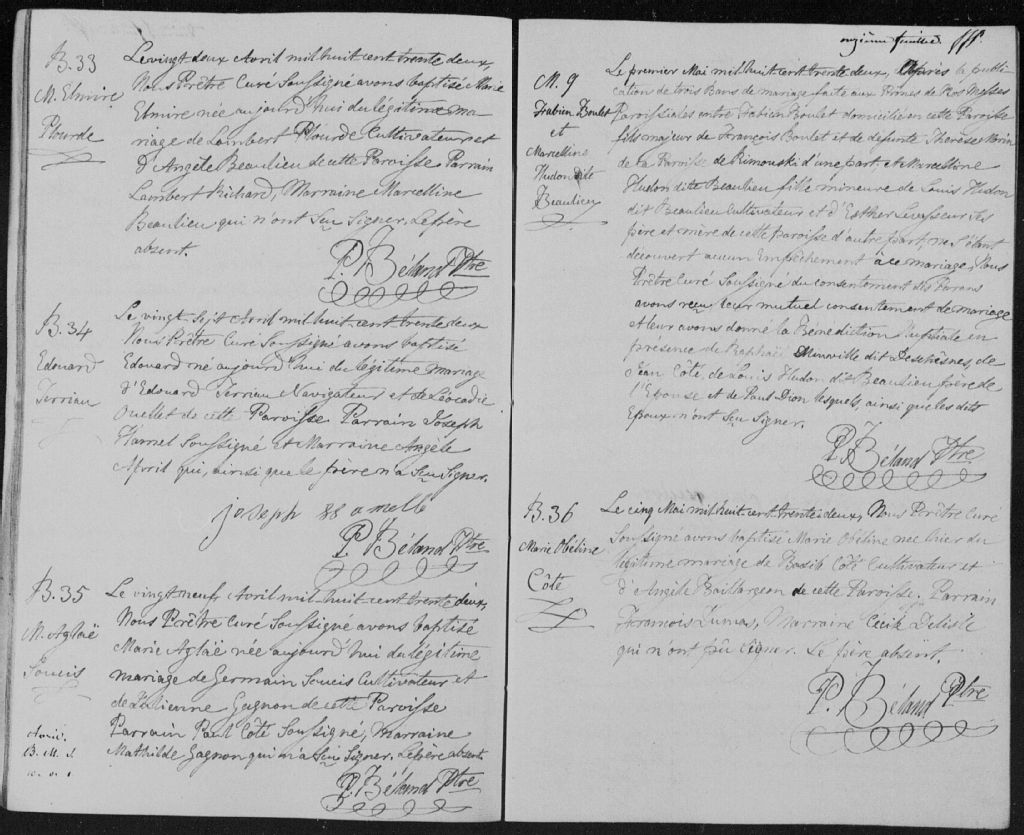 B.33
M. Elmire
Plourde
Le vingt deux Avril mil huit cent trente deux,
Nous Prêtre Curé Soussigné avons baptisé Marie
Elmire née aujourd'hui du légitime ma-
riage de Lambert Plourde Cultivateur, et
D'Angèle Beaulieu de cette Paroisse Parrain
Lambert Richard, Marraine Marcelline
Beaulieu qui n'ont Seu Signer. Le père
absent.
P. Béland Ptre
B.34
Edouard
Terriau
Le vingt Sept Avril mil huit cent trente deux
Nous Prêtre Curé Soussigné avons baptisé
Edouard né aujourd'hui du légitime mariage
d'Edouard Terriau Navigateur et de Léocadie
Ouellet de cette Paroisse Parrain Joseph
Hamel Soussigné et Marraine Angèle
Avril qui, ainsi que le père n'a Seu Signer.
joseph amell
P. Béland Ptre
B.35
M. Aglaë
Soucis
Le vingt neuf Avril mil huit cent trente deux,
Nous Prêtre Curé Soussigné avons baptisé
Marie Aglaë née aujourd'hui du légitime
mariage de Germain Soucis Cultivateur et
de Julienne Gagnon de cette Paroisse
Parrain Paul Côté Soussigné, Marraine
Mathilde Gagnon qui n'a Seu Signer. Le père absent.
B. M. S.
P. Béland Ptre
onzième feuillet
M. 9
Fabien Boulet
et
Marcelline
Hudon dite
Beaulieu
Le premier Mai mil huit cent trente deux, Après la publi-
cation de trois Bans de mariage faite aux Prônes de Nos Messes
Paroissiales entre Fabien Boulet domicilié en cette Paroisse
fils majeur de François Boulet et de défunte Thérèse Morin
de la Paroisse de Rimouski d'une part, et Marcelline
Hudon dite Beaulieu fille mineure de Louis Hudon
dit Beaulieu Cultivateur et d'Esther Levasseur Ses
père et mère de cette paroisse d'autre part, ne S'étant
découvert aucun Empêchement à ce mariage, Nous
Prêtre Curé Soussigné du consentement des Parans
avons reçu leur mutuel consentement de mariage
et leur avons donné la Bénédiction Nuptiale en
présence de Raphaël Minville dit Deschesnes, de
Jean Côté, de Louis Hudon dit Beaulieu frère de
l'Epouse et de Paul Dion lesquels, ainsi que les dits
Epoux n'ont Seu Signer.
P. Béland Ptre
B.36
Marie Obéline
Côté
Le cinq Mai mil huit cent trente deux, Nous Prêtre Curé
Soussigné avons baptisé Marie Obéline née hier du
légitime mariage de Basile Côté Cultivateur et
d'Angèle Baillargeon de cette Paroisse. Parrain
François Dumas, Marraine Cécile Delisle
qui n'ont pû Signer. Le père absent.
P. Béland Ptre